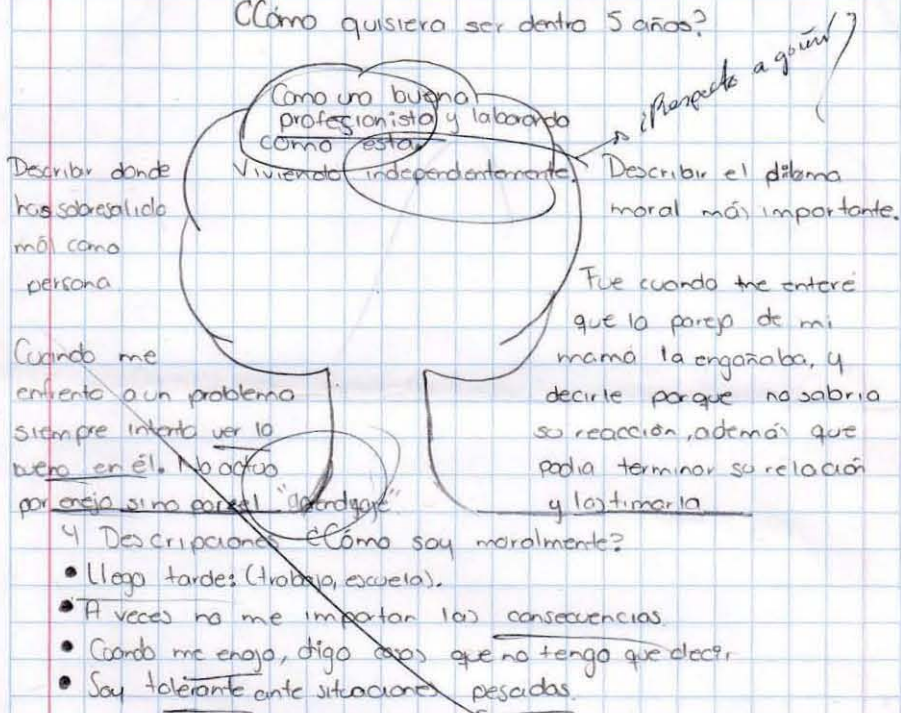 ¿Cómo quisiera ser dentro 5 años?
¿Respecto a quién?
Como una buena
profesionista y laborando
como esta.
Viviendo independientemente.
Describir donde
has sobresalido
más como
persona
Cuando me
enfrento a un problema
siempre intento ver lo
bueno en él. No actuo
por enojo sino por el "aprendizaje"
Describir el dilema
moral más importante.
Fue cuando me enteré
que la pareja de mi
mamá la engañaba, y
decirle porque no sabria
su reacción, además que
podia terminar su relación
y lastimarla
4 Descripciones ¿Cómo soy moralmente?
• Llego tarde: (trabajo, escuela).
• A veces no me importan las consecuencias.
• Cuando me enojo, digo cosas que no tengo que decir,
• Soy tolerante ante situaciones pesadas.